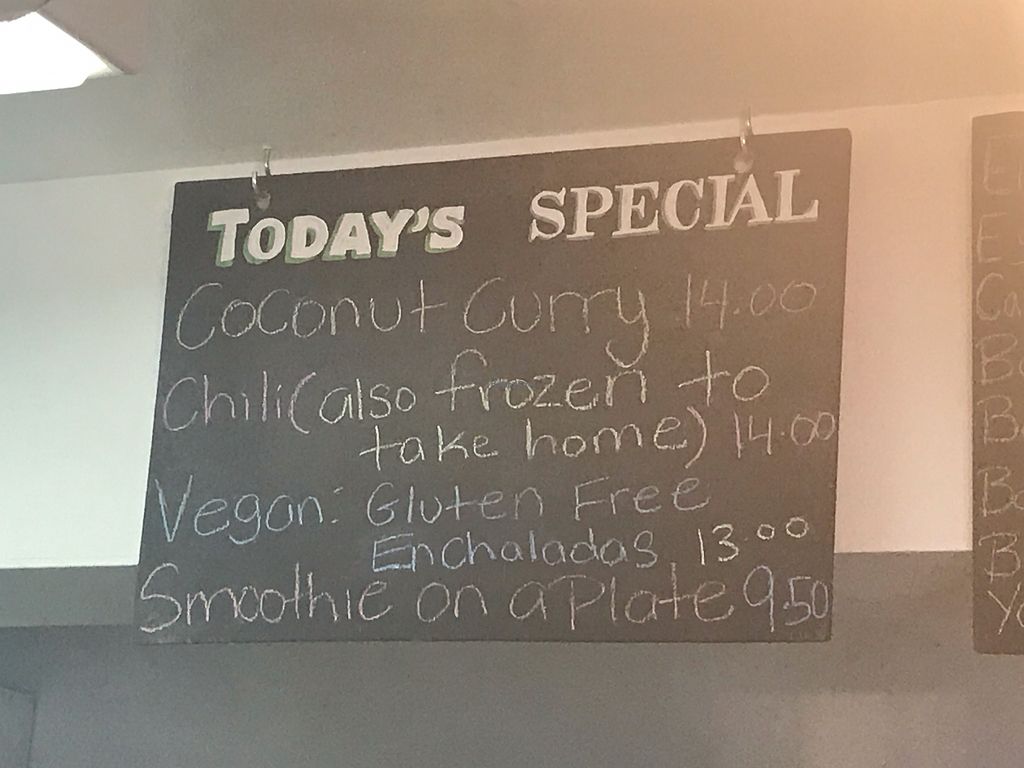 TODAY'S SPECIAL
Coconut Curry 14.00
Chili (also frozen to
take home) 14.00
Vegan: Gluten Free
Enchaladas 13.00
Smoothie on a Plate 9.50